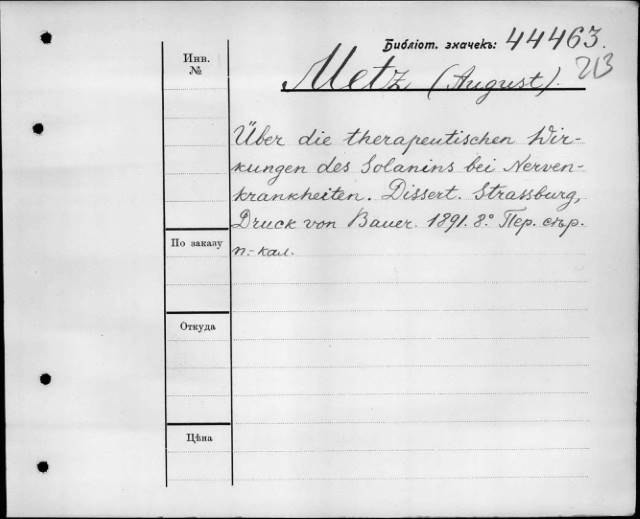 Библіот. значекъ: 44463.
213
Инв.
№
Metz (August).
Über die therapeutischen Wir-
kungen des Solanins bei Nerven-
krankheiten. Dissert. Strassburg,
Druck von Bauer. 1891. 8° Пер. сѣр.
п.-кал.
По заказу
Откуда
Цѣна